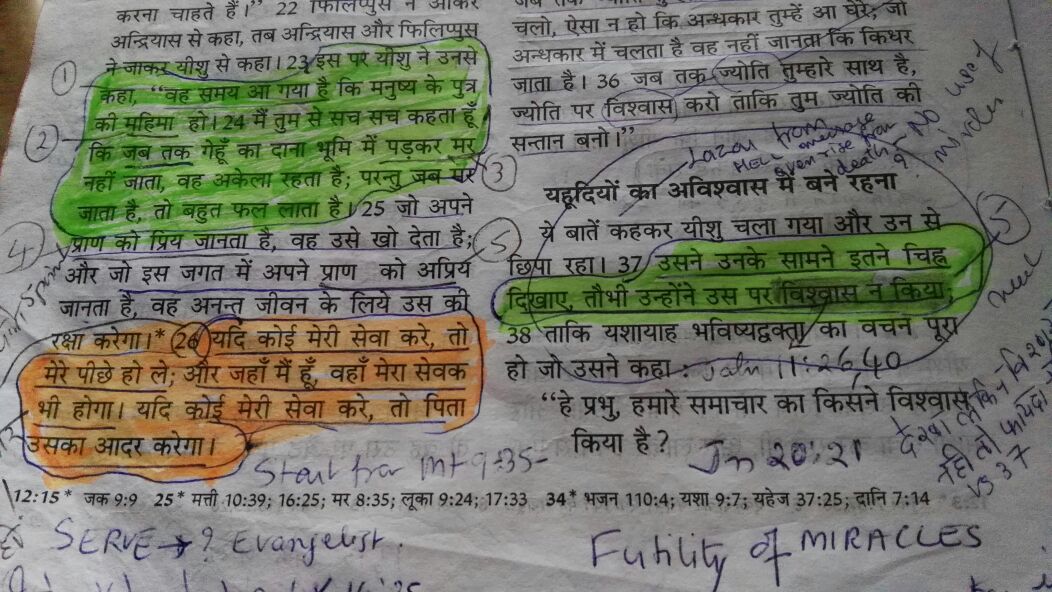 करना चाहते हैं।” 22 फिलिप्पुस ने आकर
अन्द्रियास से कहा, तब अन्द्रियास और फिलिप्पुस
ने जाकर यीशु से कहा। 23 इस पर यीशु ने उनसे
कहा, “वह समय आ गया है कि मनुष्य के पुत्र
की महिमा हो। 24 मैं तुम से सच सच कहता हूँ
कि जब तक गेहूँ का दाना भूमि में पड़कर मर
नहीं जाता, वह अकेला रहता है; परन्तु जब मर
जाता है, तो बहुत फल लाता है। 25 जो अपने
प्राण को प्रिय जानता है, वह उसे खो देता है;
और जो इस जगत में अपने प्राण को अप्रिय
जानता है, वह अनन्त जीवन के लिये उस की
रक्षा करेगा।* 26 यदि कोई मेरी सेवा करे, तो
मेरे पीछे हो ले; और जहाँ मैं हूँ, वहाँ मेरा सेवक
भी होगा। यदि कोई मेरी सेवा करे, तो पिता
उसका आदर करेगा।
1
2
3
4
5
Start from Mt 9:35-
चलो, ऐसा न हो कि अन्धकार तुम्हें आ घेरे; जो
अन्धकार में चलता है वह नहीं जानता कि किधर
जाता है। 36 जब तक ज्योति तुम्हारे साथ है,
ज्योति पर विश्वास करो ताकि तुम ज्योति की
सन्तान बनो।”
Lazar from
HELL
even rise from
death?
No use of
miracles
यहूदियों का अविश्वास में बने रहना
ये बातें कहकर यीशु चला गया और उन से
छिपा रहा। 37 उसने उनके सामने इतने चिह्न
दिखाए, तौभी उन्होंने उस पर विश्वास न किया;
38 ताकि यशायाह भविष्यद्वक्ता का वचन पूरा
हो जो उसने कहा :
John 11:26,40
“हे प्रभु, हमारे समाचार का किसने विश्वास
किया है?
Jn 20:21
vs 37
12:15* जक 9:9 25* मत्ती 10:39; 16:25; मर 8:35; लूका 9:24; 17:33 34* भजन 110:4; यशा 9:7; यहेज 37:25; दानि 7:14
SERVE → ? Evangelist.
Futility of MIRACLES